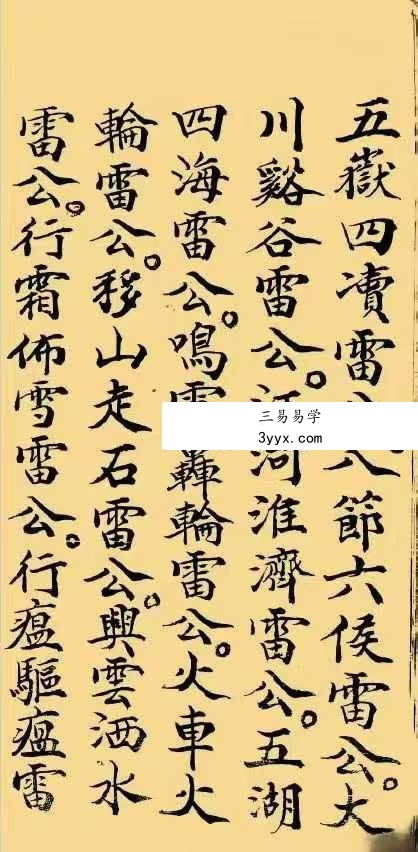 五嶽四瀆雷公。八節六侯雷公。大
川谿谷雷公。江河淮濟雷公。五湖
四海雷公。鳴雷轟輪雷公。火車火
輪雷公。移山走石雷公。興雲洒水
雷公。行霜佈雪雷公。行瘟驅瘟雷
三易易学
3yyx.com